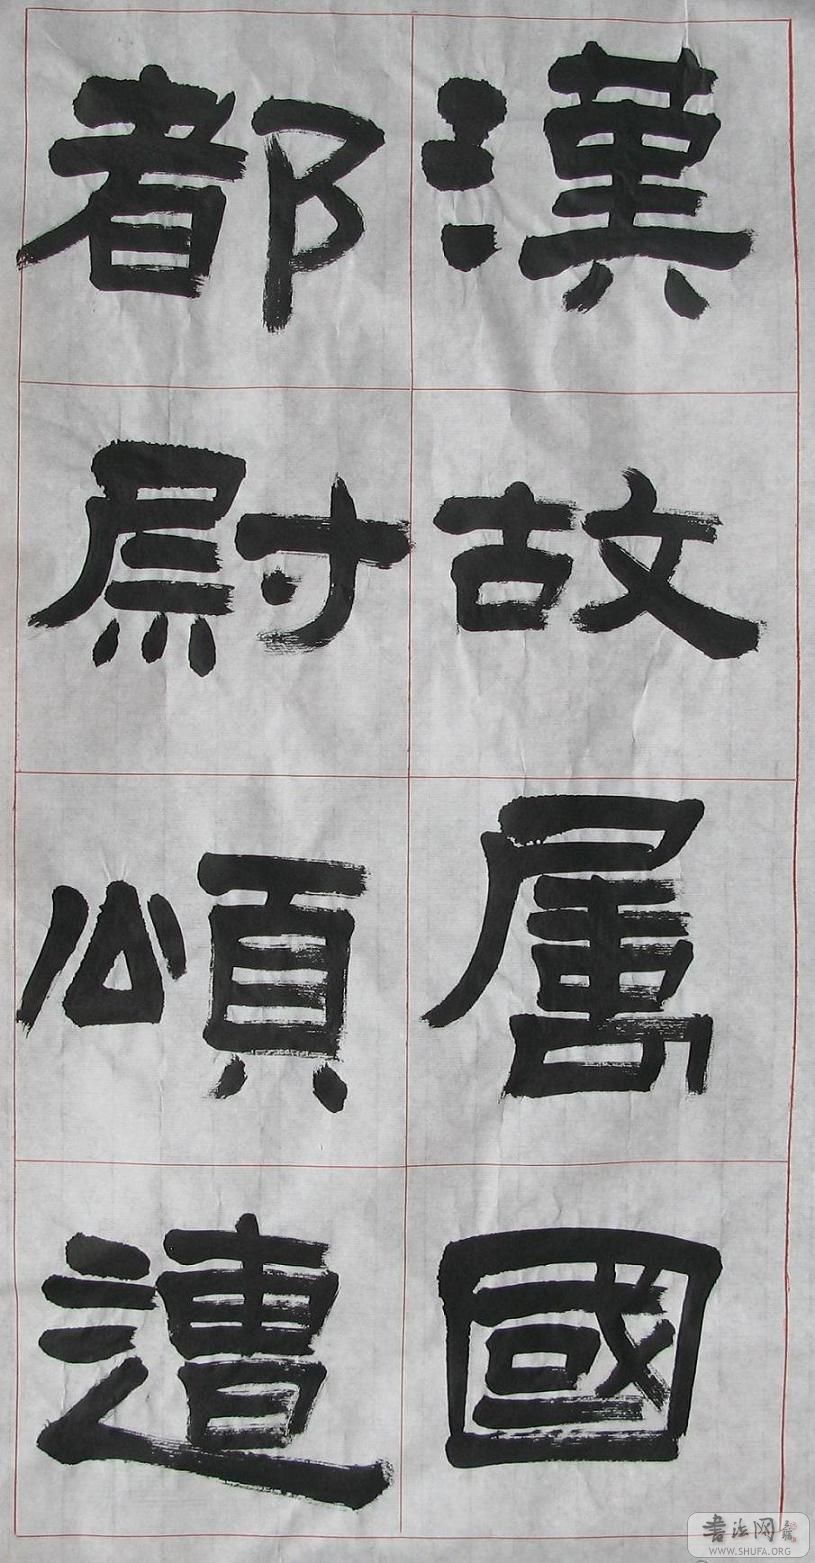 漢故属國
都尉頌遭
书法网
WWW.SHUFA.ORG